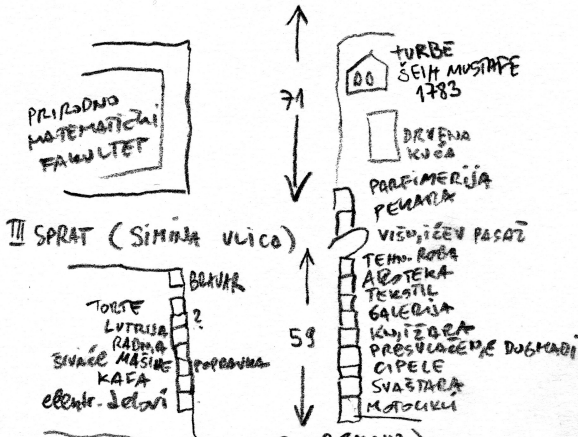 TURBE
ŠEIH MUSTAFE
1783
71
PRIRODNO
MATEMATIČKI
FAKULTET
DRVENA
KUĆA
PARFIMERIJA
PEKARA
III SPRAT (SIMINA ULICA)
VIŠNJIĆEV PASAŽ
TEHN. ROBA
APOTEKA
TEKSTIL
GALERIJA
KNJIŽARA
PRESVLAČENJE DUGMADI
CIPELE
SVAŠTARA
MOTOCIKLI
59
BRAVAR
TORTE
?
LUTRIJA
RADNJA
ŠIVAĆE MAŠINE POPRAVKA
KAFA
elektr. delovi